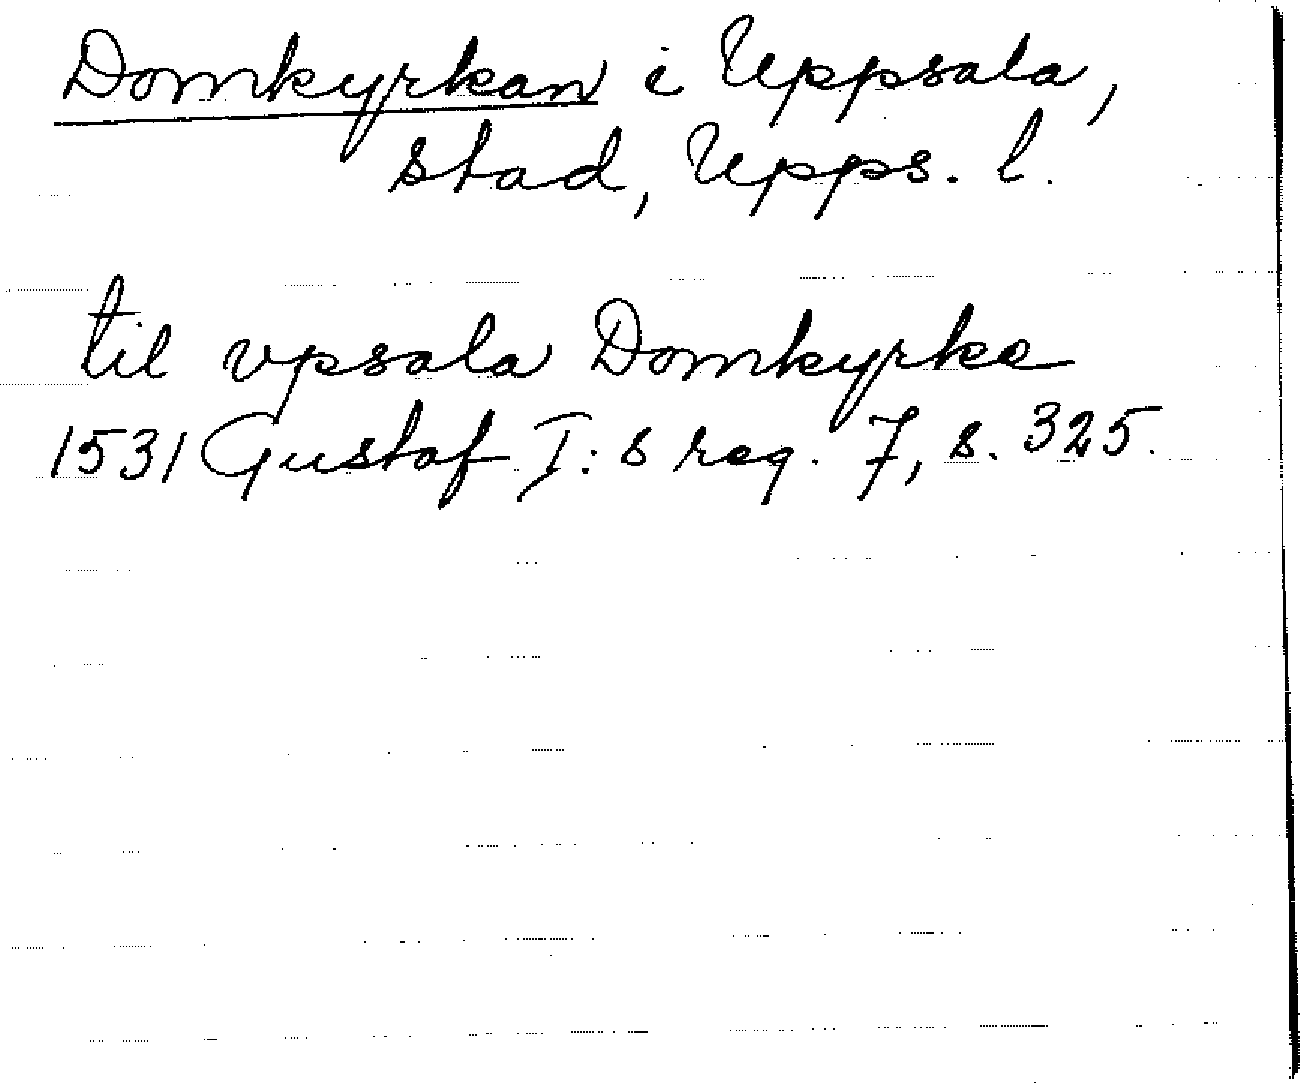 Domkyrkan i Uppsala,
stad, Upps. l.
til vpsala Domkyrke
1531 Gustaf I:s reg. 7, s. 325.